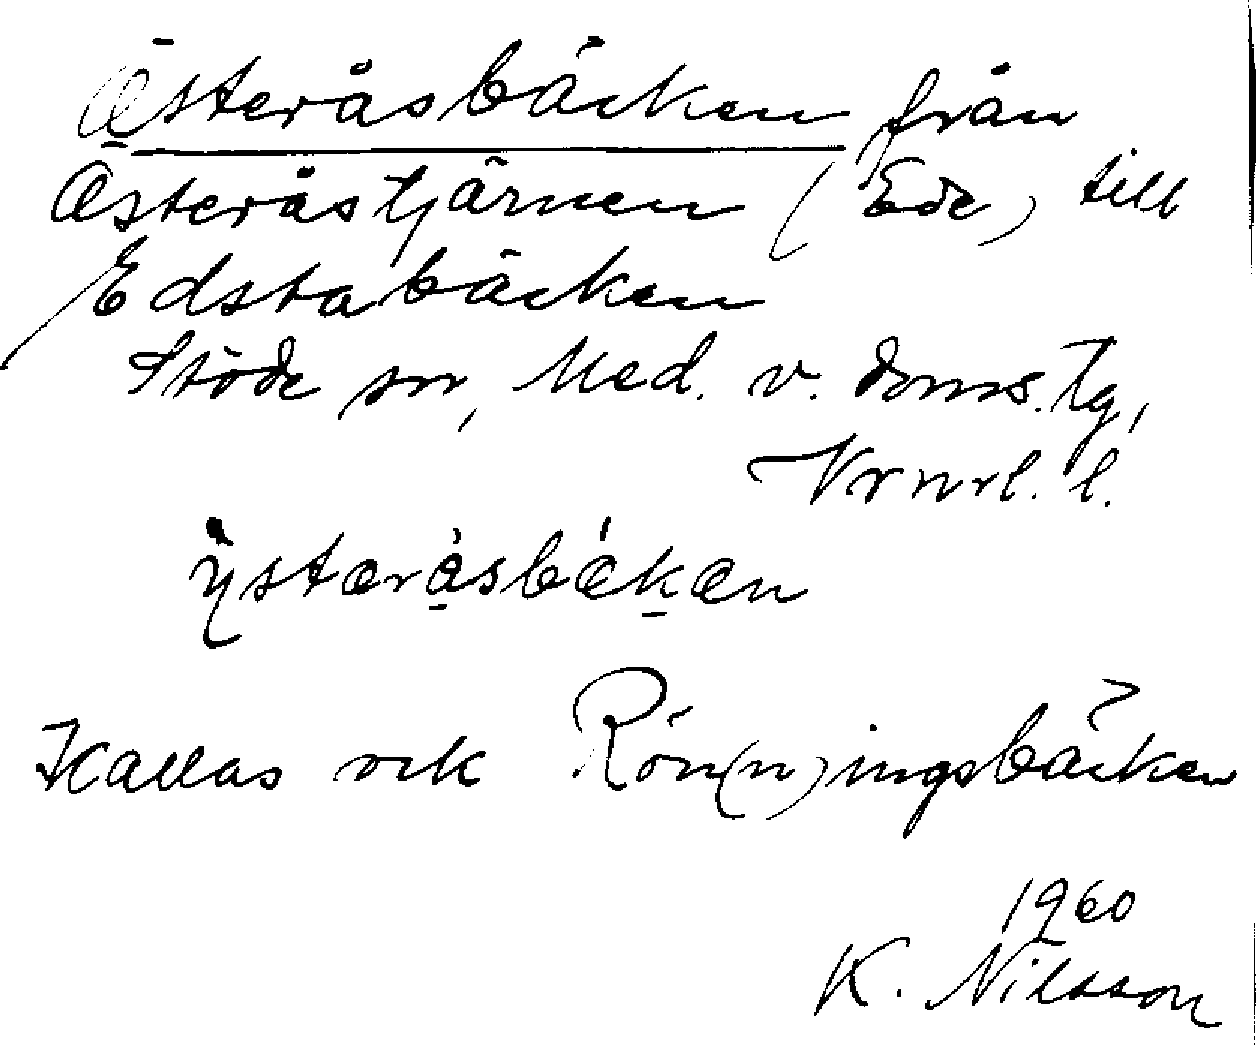 Österåsbäcken från
Österåstjärnen (Ede) till
Edstabäcken
Stöde sn, Med. v. doms. Tg,
Vrnrl. l.
ystæråsbækæn
Kallas ock Rön(n)ingsbäcken
1960
K. Nilsson